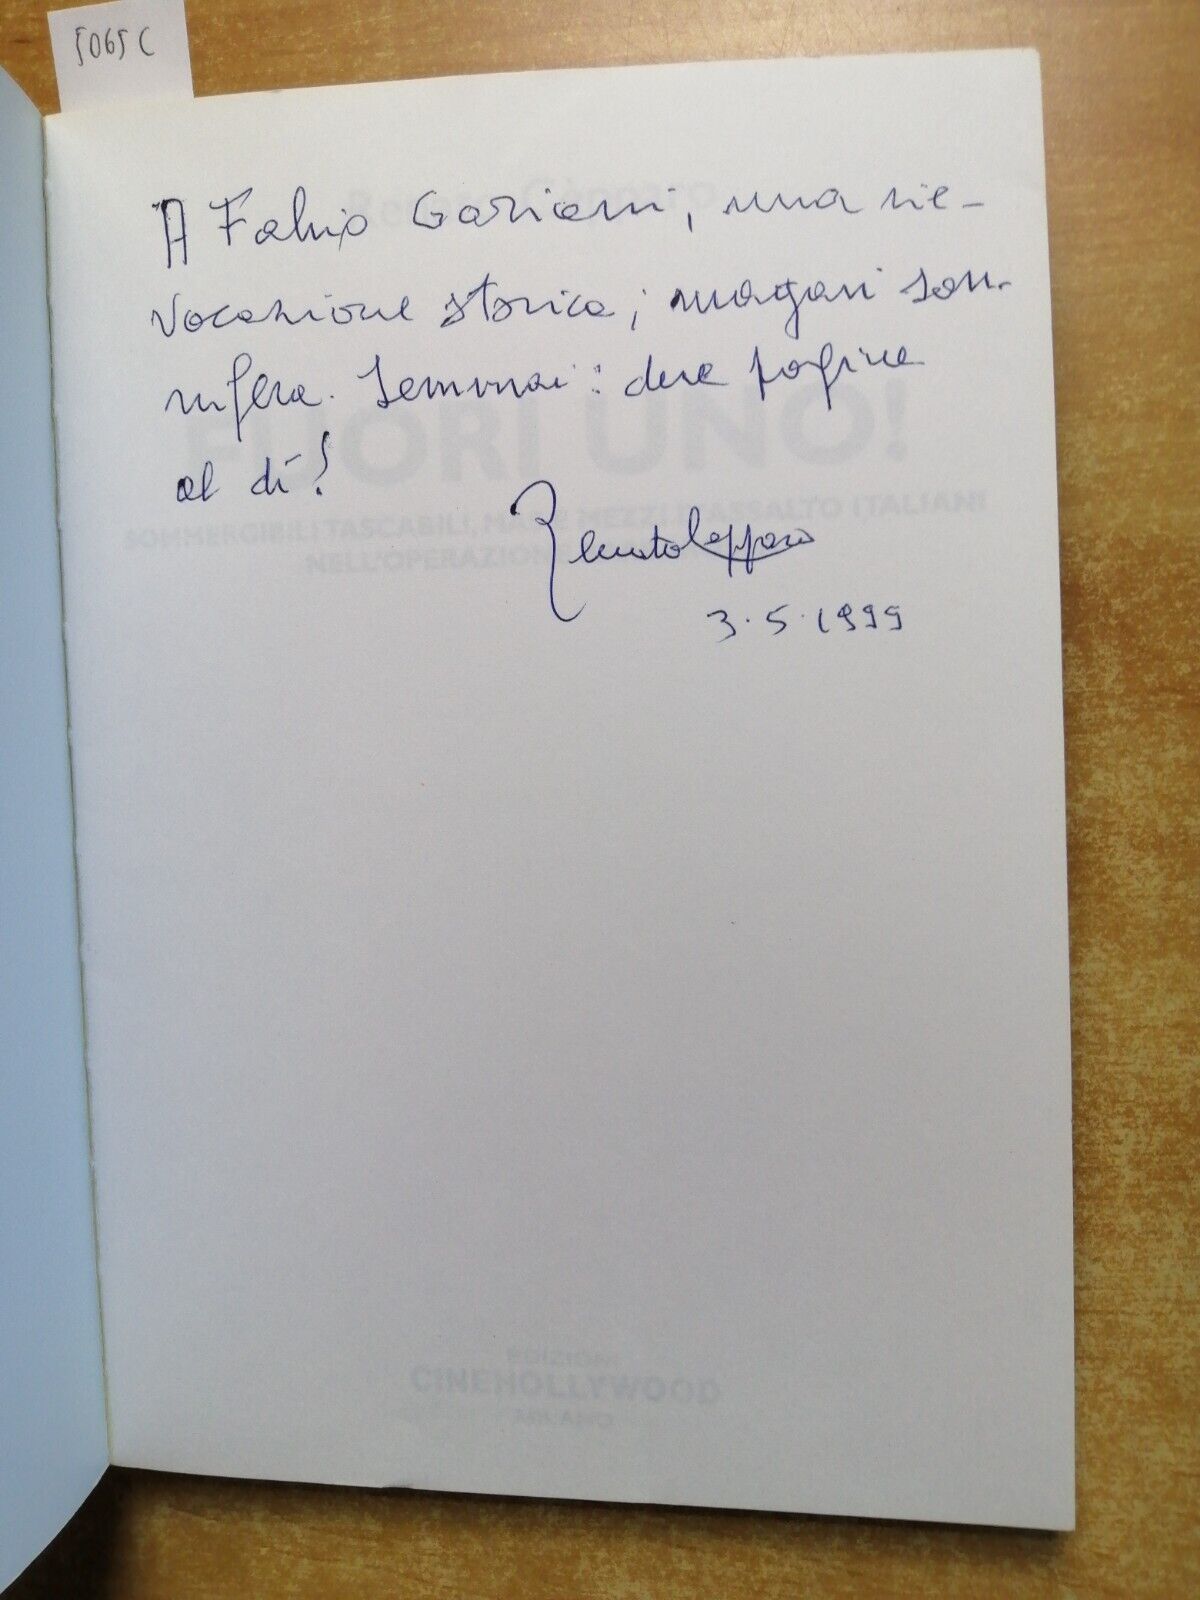 5065 C
A Fabio Gariani, una rie-
vocazione storica; magari son-
nifera. Semmai: due pagine
al dì!
Renato Cepparo
3.5.1999
FUORI UNO!
SOMMERGIBILI TASCABILI, MAS E MEZZI D'ASSALTO ITALIANI
NELL'OPERAZIONE
EDIZIONI
CINEHOLLYWOOD
MILANO